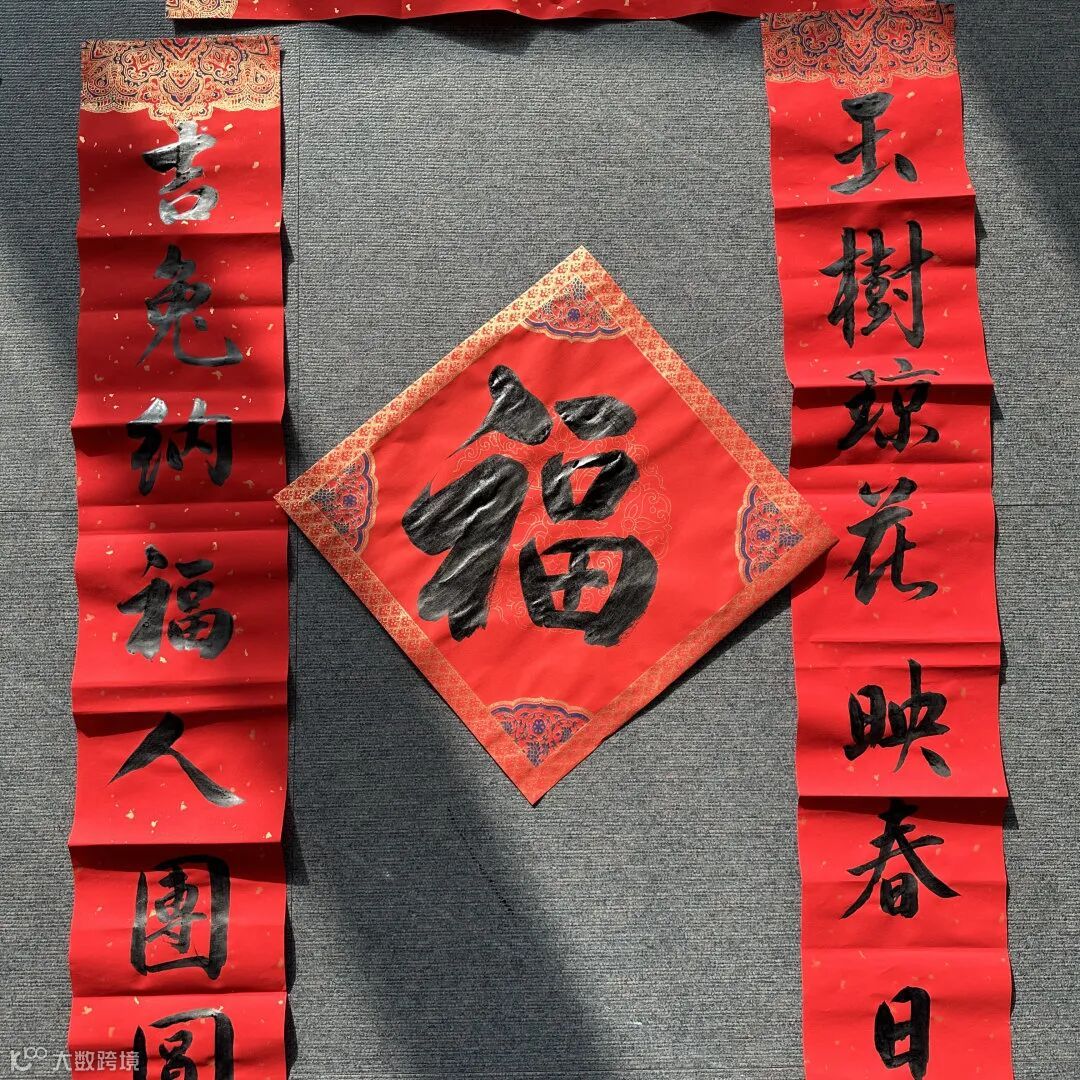 玉樹琼花映春日
福
吉兔纳福人團圓
大数跨境